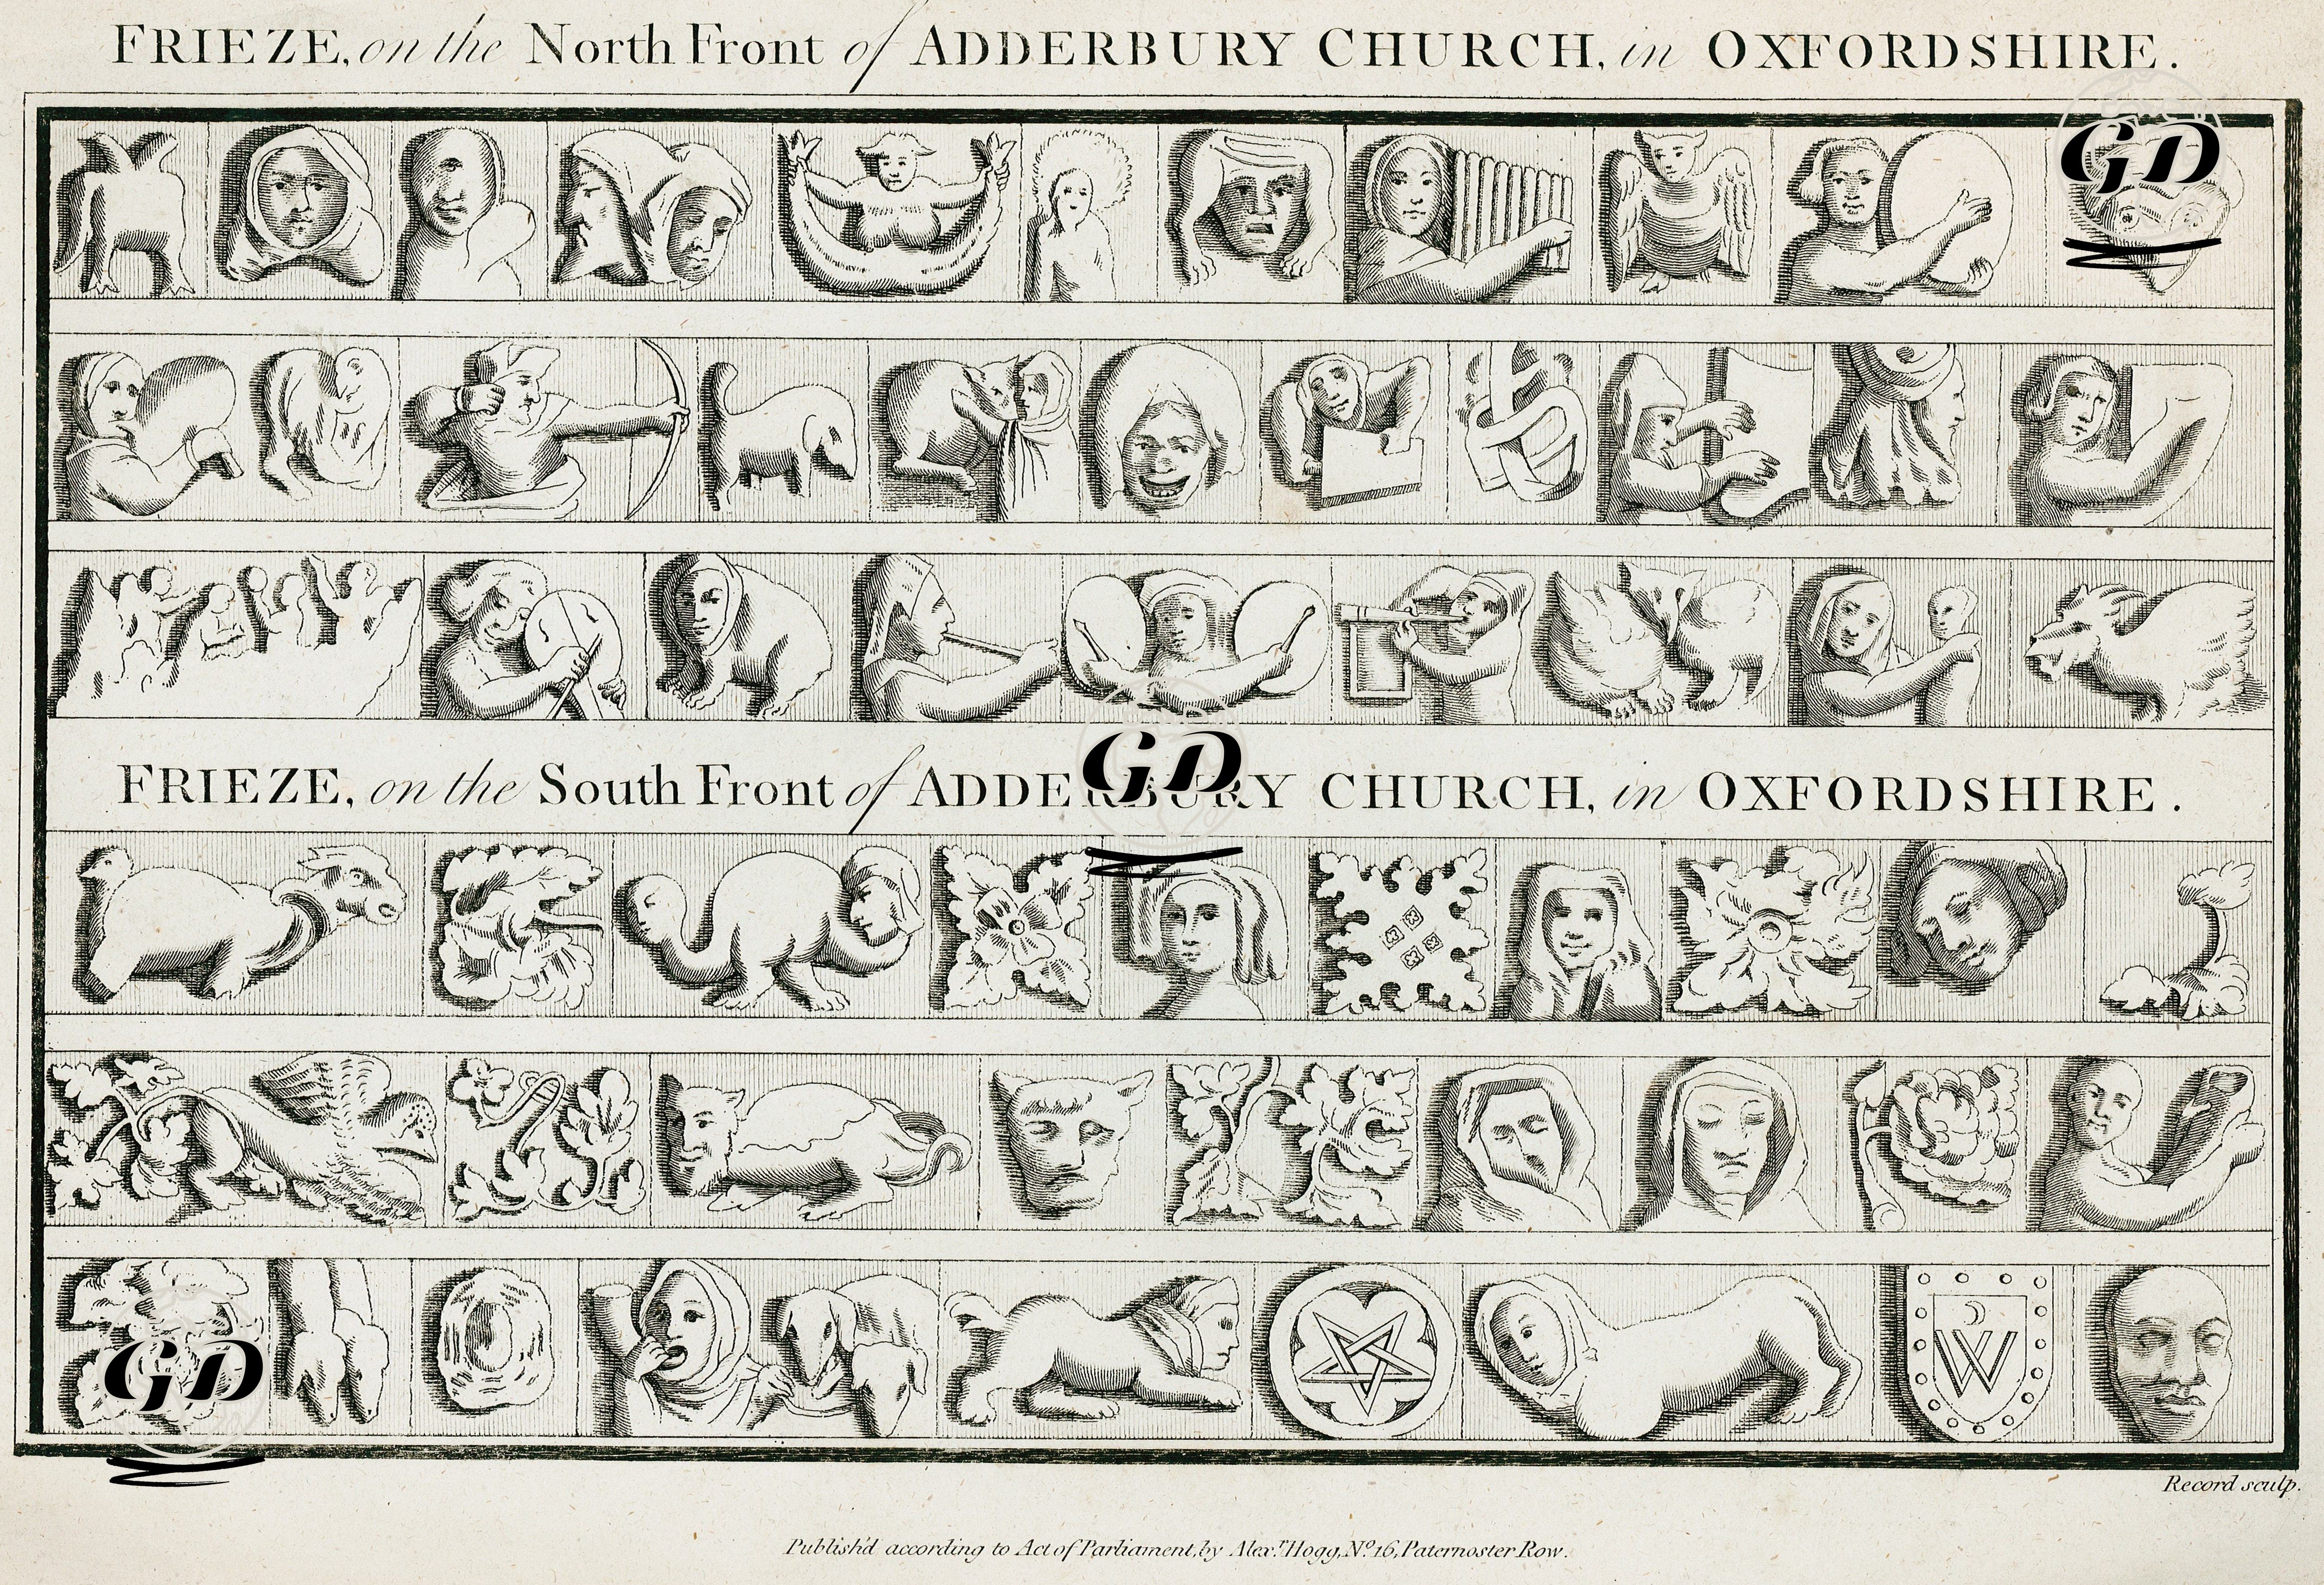 FRIEZE, on the North Front of ADDERBURY CHURCH, in OXFORDSHIRE.
GD
GD
FRIEZE, on the South Front of ADDERBURY CHURCH, in OXFORDSHIRE.
W
GD
Record sculp.
Publish'd according to Act of Parliament, by Alex.r Hogg, No. 16, Paternoster Row.